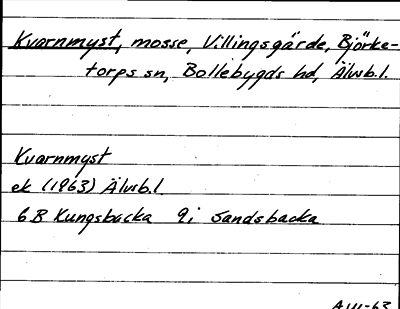 Kvarnmyst, mosse, Villingsgärde, Björke-
torps sn, Bollebygds hd, Älvsb.l.
Kvarnmyst
ek (1963) Älvsb.l.
6B Kungsbacka 9i Sandsbacka